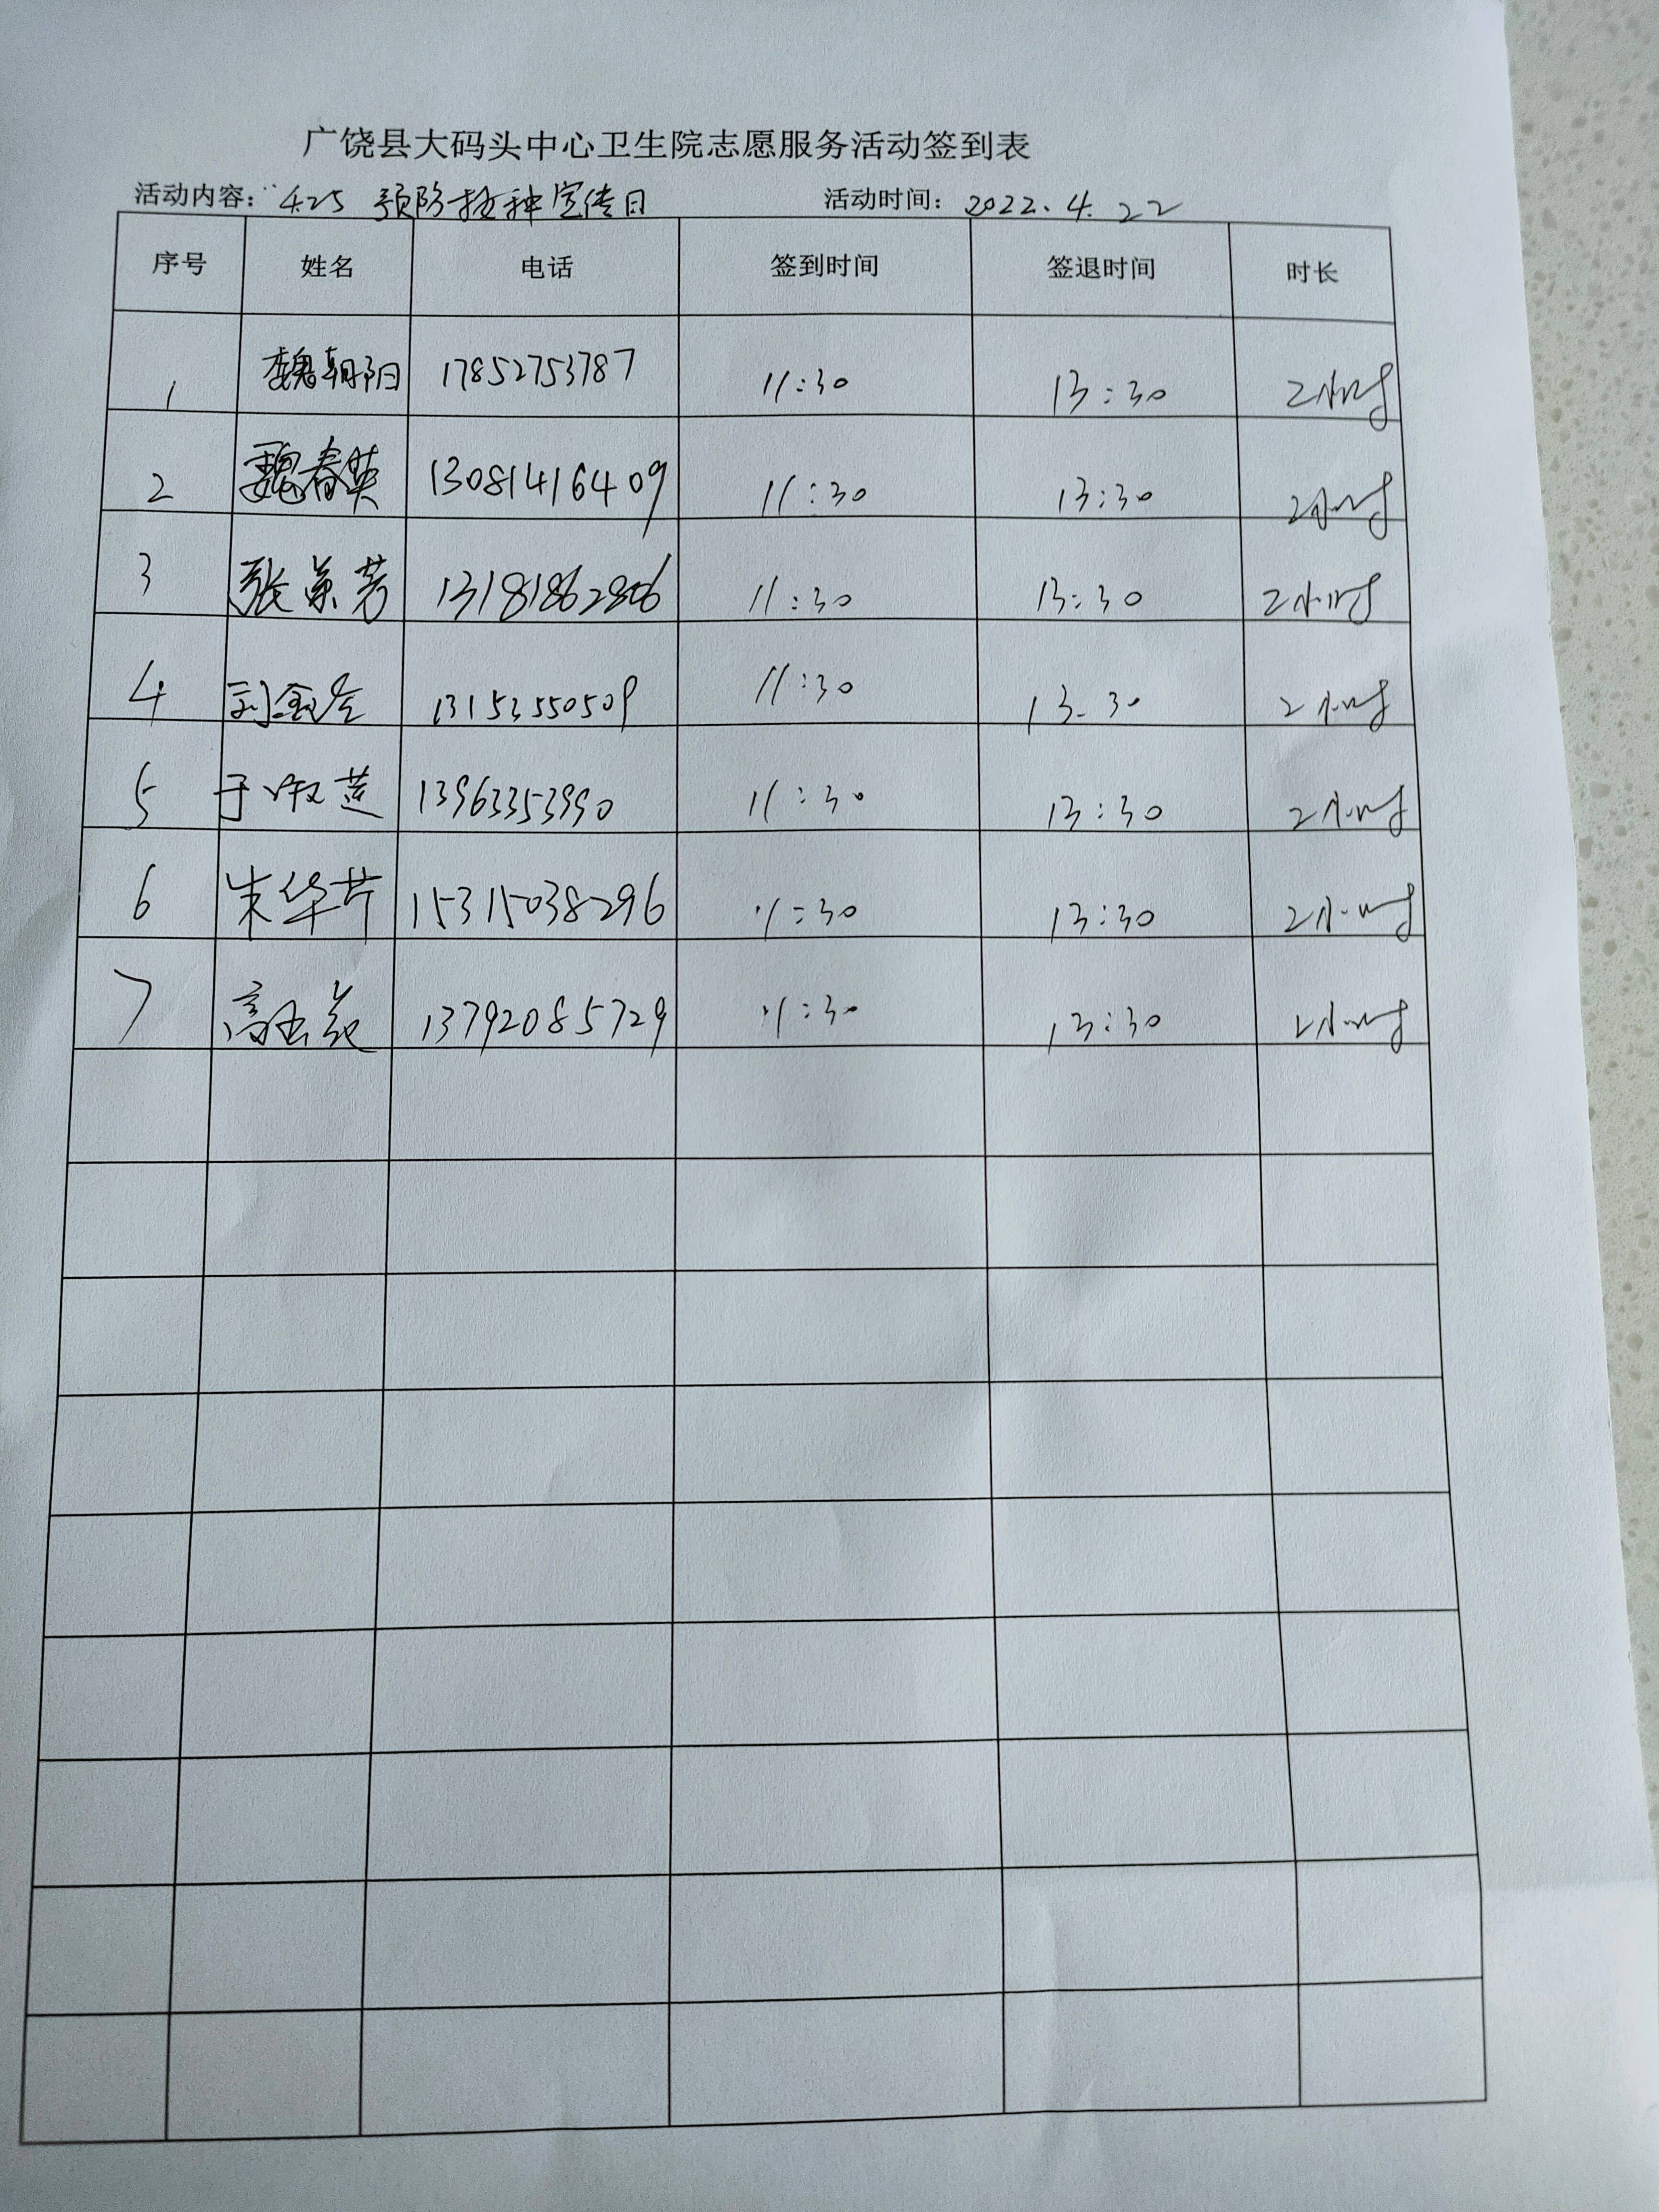 广饶县大码头中心卫生院志愿服务活动签到表
活动内容：4.25 预防接种宣传日 活动时间：2022.4.22
序号 姓名 电话 签到时间 签退时间 时长
1 魏朝阳 17852753787 11:30 13:30 2小时
2 魏春英 13081416409 11:30 13:30 2小时
3 张荣芳 13181862806 11:30 13:30 2小时
4 13153550509 11:30 13.30 2小时
5 于淑莲 13963353990 11:30 13:30 2小时
6 朱华芹 15315038296 11:30 13:30 2小时
7 13792085729 11:30 13:30 2小时